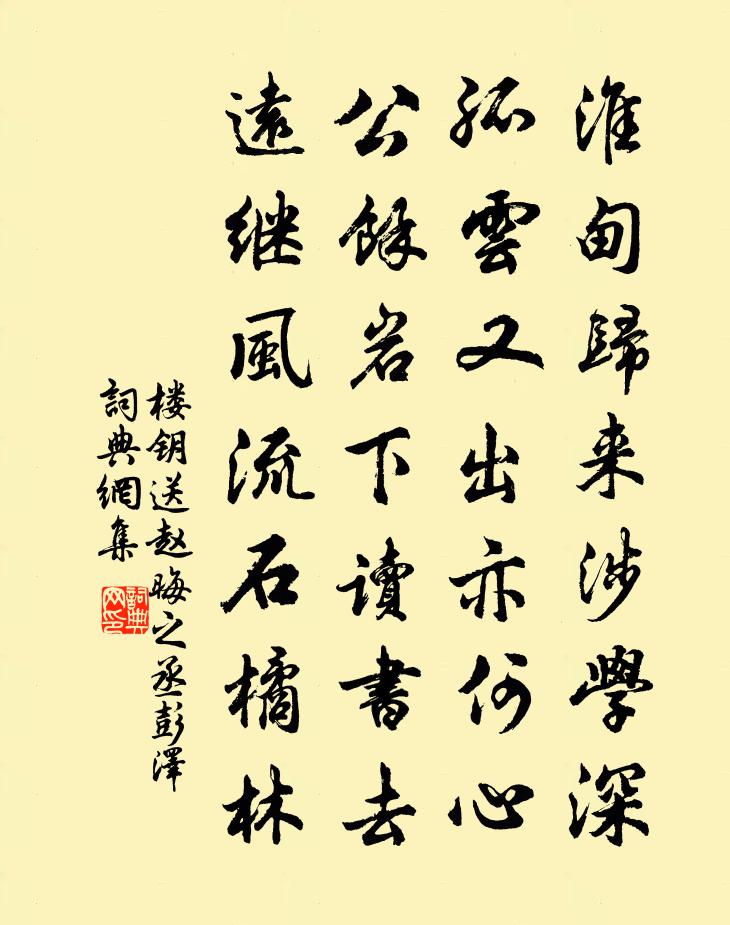 淮甸歸来涉學深
孤雲又出亦何心
公餘岩下讀書去
遠继風流石橘林
楼钥送赵晦之丞彭澤
詞典網集
詞典
网印